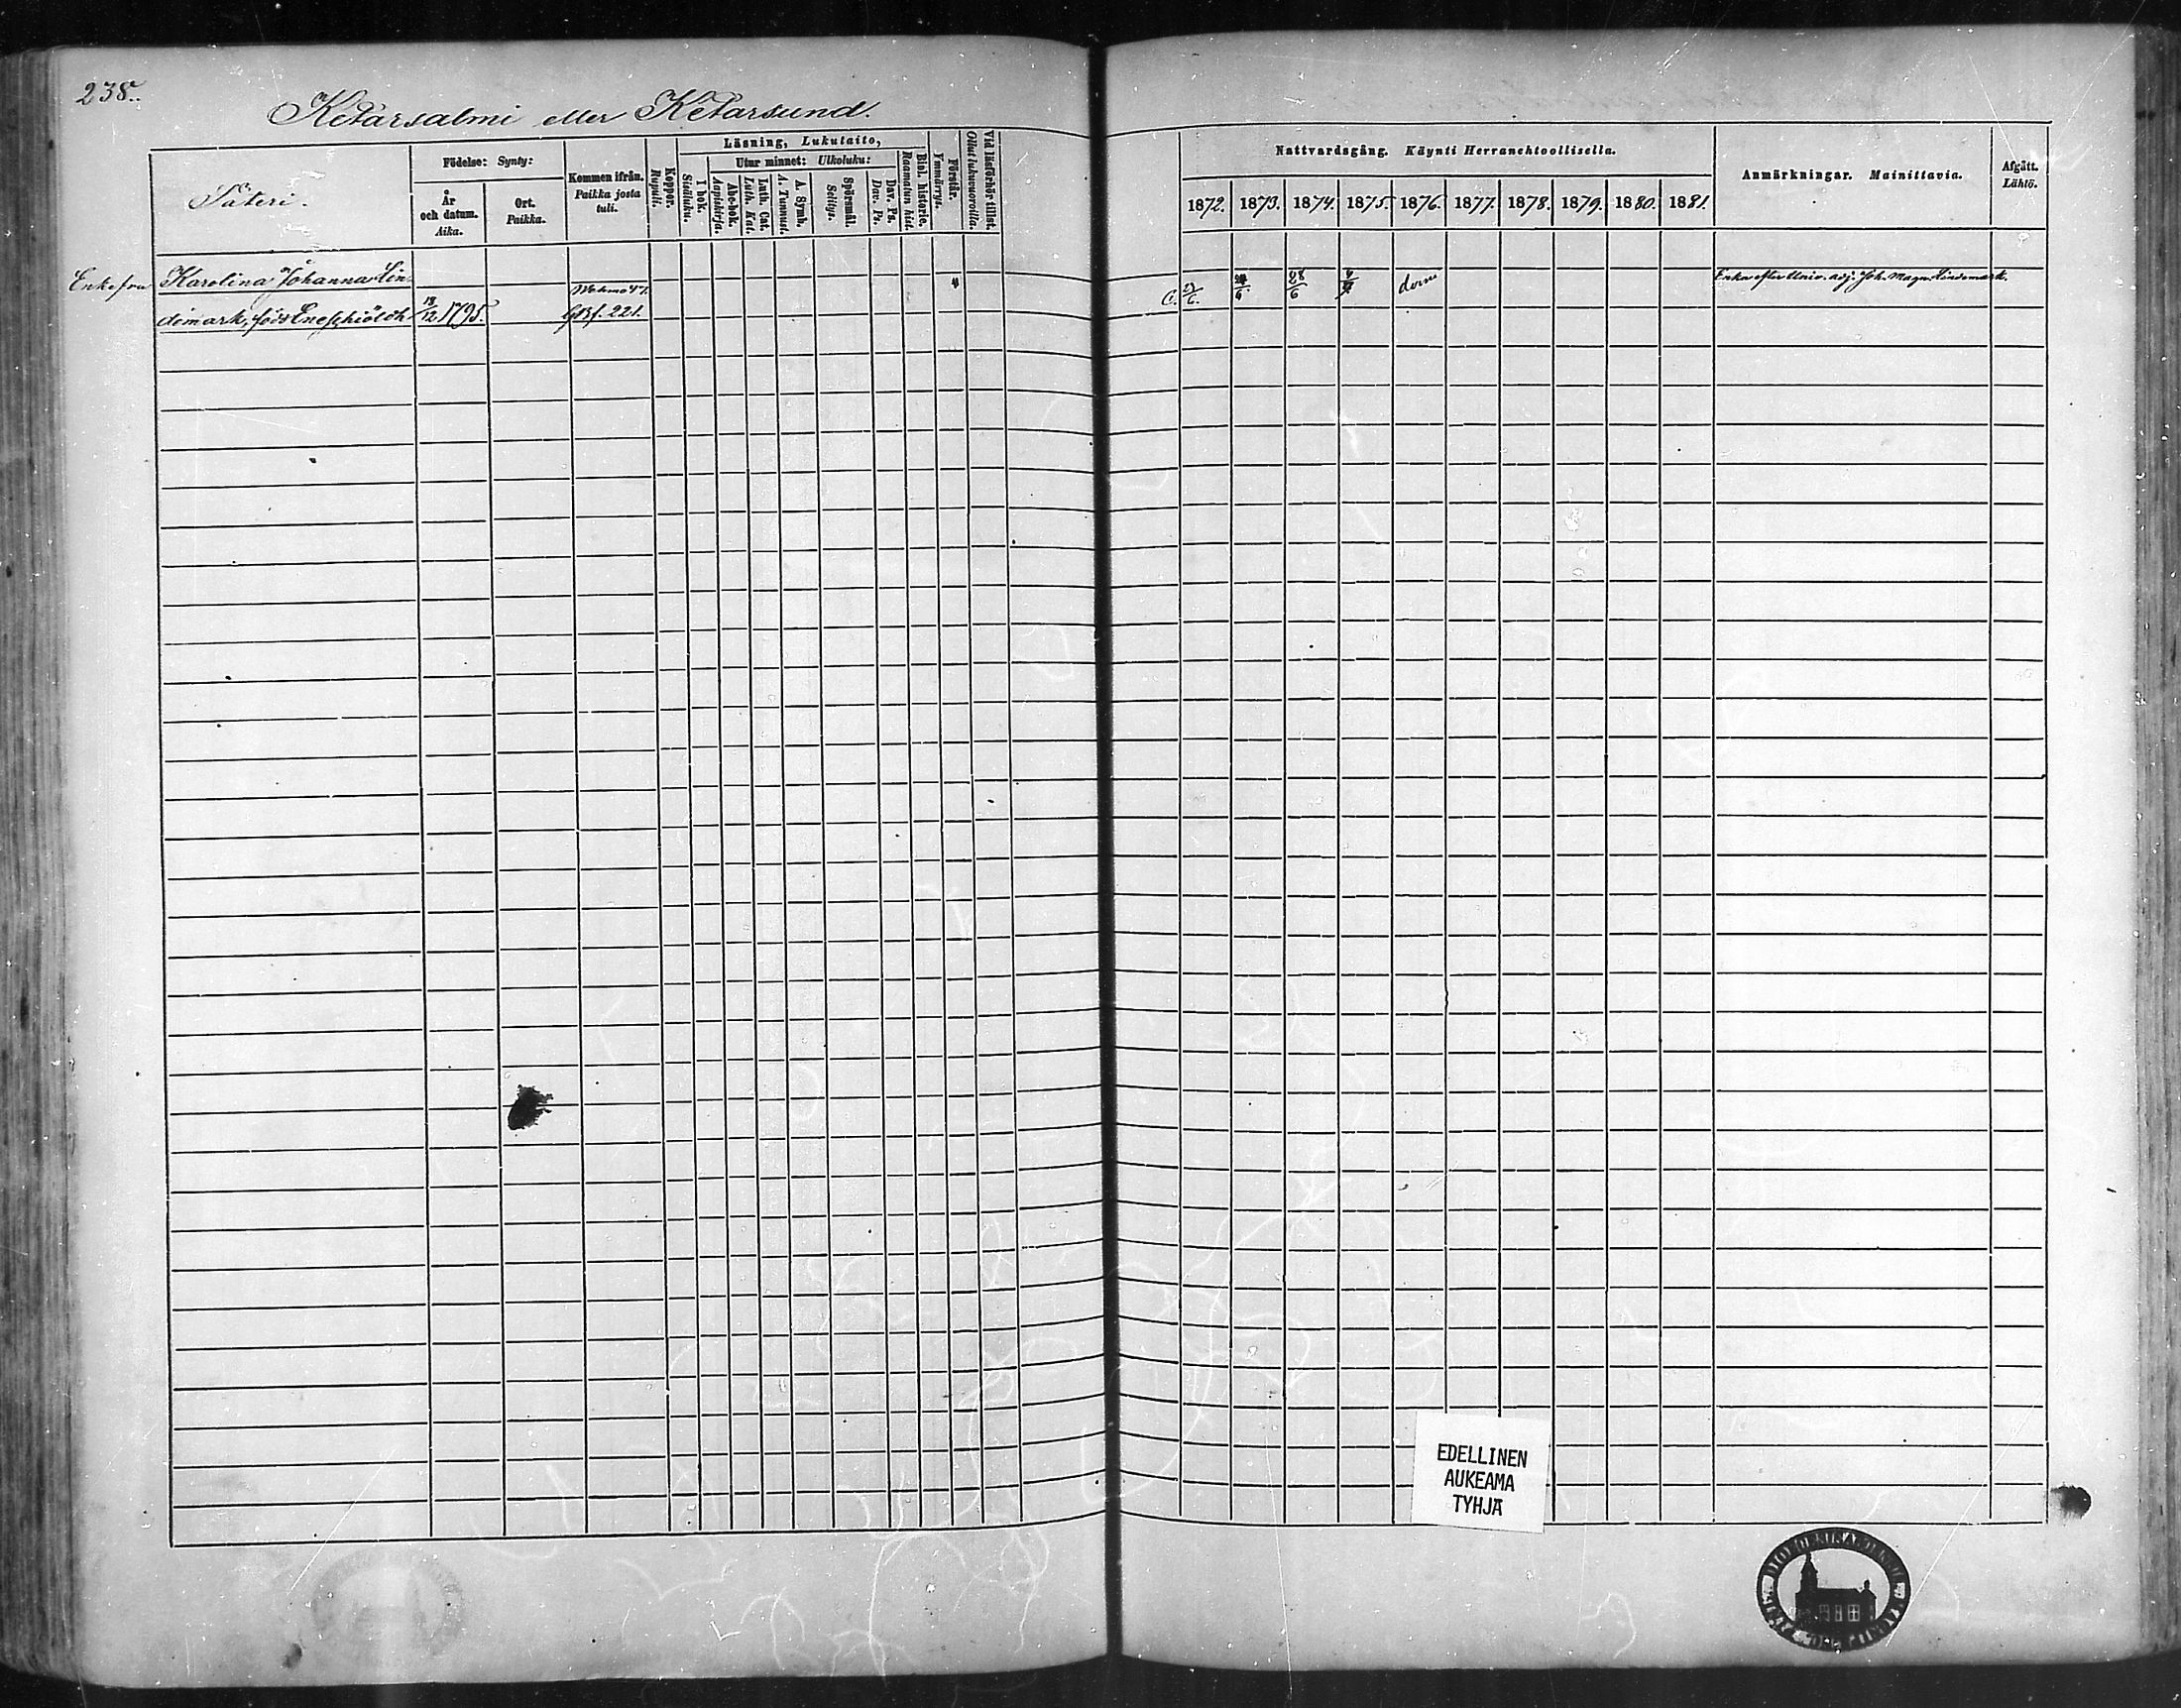 238.
Ketarsalmi eller Ketarsund.
Säteri.
Födelse: Synty:
År
och datum.
Aika.
Ort.
Paikka.
Kommen ifrån.
Paikka josta
tuli.
Koppor.
Rupuli.
Läsning, Lukutaito,
I bok.
Sisäluku.
Utur minnet: Ulkoluku:
Abc-bok.
Aapiskirja.
Luth. Cat.
Luth. Kat.
A. Symb.
A. Tunnust.
Spörsmål.
Selitys.
Dav. Ps.
Dav. Ps.
Bibl. historie.
Raamatun hist.
Förstår.
Ymmärrys.
Vid läsförhör tillst.
Ollut lukuvuoroilla.
Nattvardsgång. Käynti Herranehtoollisella.
1872. 1873. 1874. 1875. 1876. 1877. 1878. 1879. 1880. 1881.
Anmärkningar. Mainittavia.
Afgått.
Lähtö.
Enkefru Karolina Johanna Lin-
demark, född 18/12 1795.
221.
28/6
Enka efter Univ. adj. Joh. Magn. Lindemark.
EDELLINEN
AUKEAMA
TYHJÄ